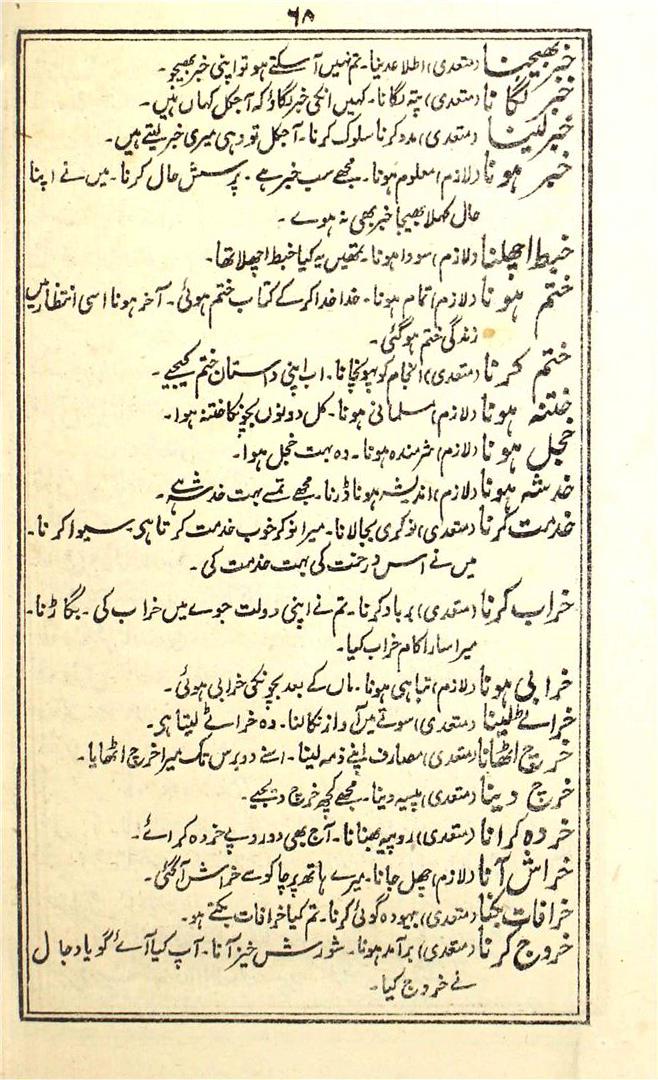 ۶۸
خبر بھیجنا (متعدی) اطلاع دینا۔ تم نہیں آ سکتے ہو تو اپنی خبر بھیجو۔
خبر لگانا (متعدی) پتہ لگانا۔ کہیں انکی خبر لگاؤ کہ آجکل کہاں ہیں۔
خبر لینا (متعدی) مدد کرنا سلوک کرنا۔ آجکل تو وہی میری خبر لیتے ہیں۔
خبر ہونا (لازم) معلوم ہونا۔ مجھے سب خبر ہے۔ پرسش حال کرنا۔ میں نے اپنا
حال کہلا بھیجا خبر بھی نہ ہوے۔
خبط اچھلنا (لازم) سودا ہونا۔ تمھیں یہ کیا خبط اچھلا تھا۔
ختم ہونا (لازم) تمام ہونا۔ خدا خدا کر کے کتاب ختم ہوئی۔ آخر ہونا اسی انتظار میں
زندگی ختم ہو گئی۔
ختم کرنا (متعدی) انجام کو پہونچانا۔ اب اپنی داستان ختم کیجیے۔
ختنہ ہونا (لازم) مسلمانی ہونا۔ کل دونوں بچونکا ختنہ ہوا۔
خجل ہونا (لازم) شرمندہ ہونا۔ وہ بہت خجل ہوا۔
خدشہ ہونا (لازم) اندیشہ ہونا ڈرنا۔ مجھے تمسے بہت خدشہ ہے۔
خدمت کرنا (متعدی) نوکری بجالانا۔ میرا نوکر خوب خدمت کرتا ہی۔ سیوا کرنا۔
میں نے اس درخت کی بہت خدمت کی۔
خراب کرنا (متعدی) برباد کرنا۔ تم نے اپنی دولت جوے میں خراب کی۔ بگاڑنا۔
میرا سارا کام خراب کیا۔
خرابی ہونا (لازم) تباہی ہونا۔ ماں کے بعد بچونکی خرابی ہوئی۔
خراٹے لینا (متعدی) سوتے میں آواز نکالنا۔ وہ خراٹے لیتا ہی۔
خرچ اٹھانا (متعدی) مصارف اپنے ذمہ لینا۔ اسنے دو برس تک میرا خرچ اٹھایا۔
خرچ دینا (متعدی) پیسہ دینا۔ مجھے کچھ خرچ دیجیے۔
خردہ کرانا (متعدی) روپیہ بھنانا۔ آج بھی دو روپے خردہ کرائے۔
خراش آنا (لازم) چھل جانا۔ میرے ہاتھ پر چاکو سے خراش آ گئی۔
خرافات بکنا (متعدی) بیہودہ گوئی کرنا۔ تم کیا خرافات بکتے ہو۔
خروج کرنا (متعدی) برآمد ہونا۔ شورش خیز آنا۔ آپ کیا آئے گویا دجال
نے خروج کیا۔